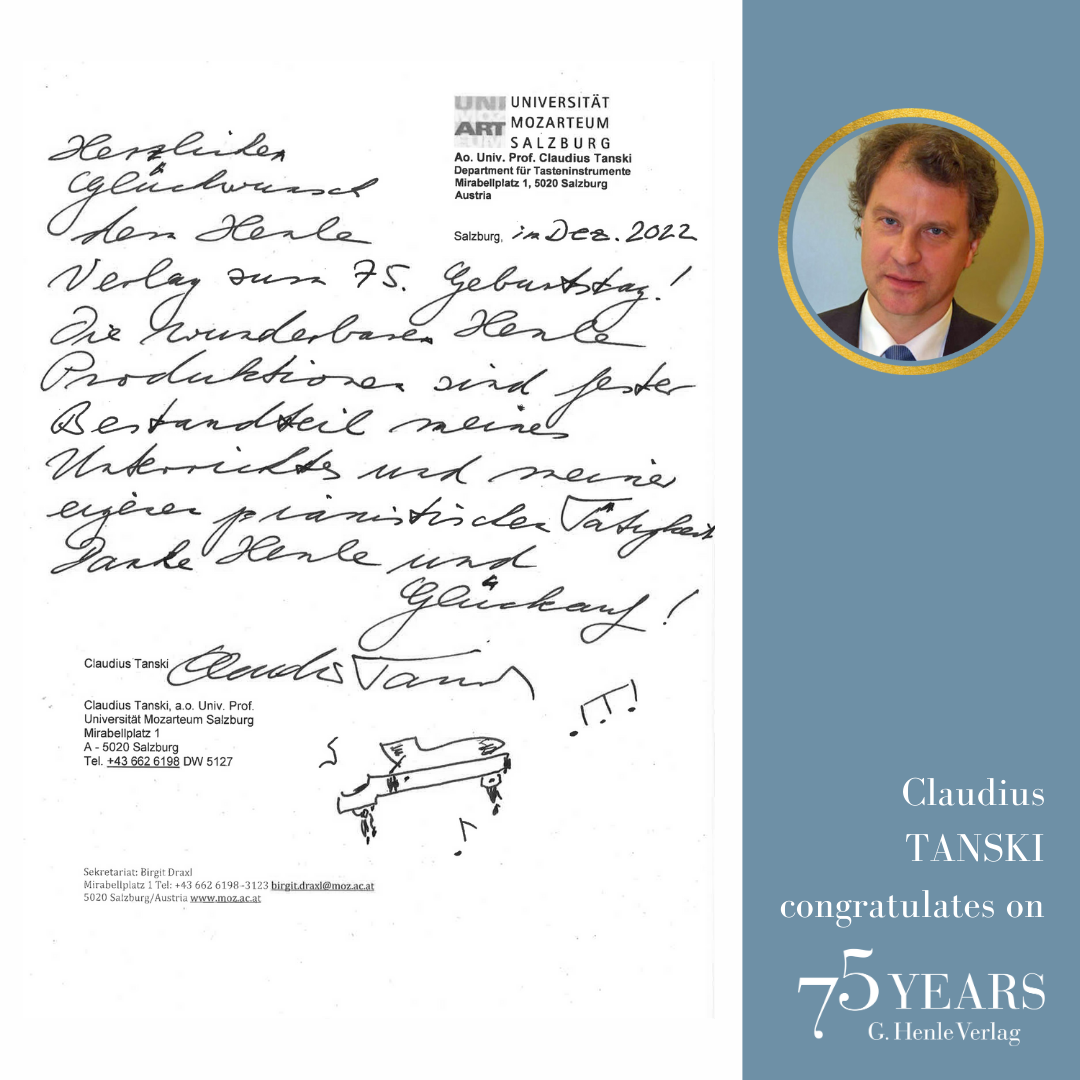 UNI
MOZ
ART
EUM
UNIVERSITÄT
MOZARTEUM
SALZBURG
Ao. Univ. Prof. Claudius Tanski
Department für Tasteninstrumente
Mirabellplatz 1, 5020 Salzburg
Austria
Salzburg, im Dez. 2022
Herzlichen
Glückwunsch
dem Henle
Verlag zum 75. Geburtstag!
Die wunderbaren Henle
Produktionen sind fester
Bestandteil meines
Unterrichtes und meiner
eigenen pianistischen Tätigkeit
Danke Henle und
Glückauf!
Claudius Tanski Claudius Tanski
Claudius Tanski, a.o. Univ. Prof.
Universität Mozarteum Salzburg
Mirabellplatz 1
A - 5020 Salzburg
Tel. +43 662 6198 DW 5127
Sekretariat: Birgit Draxl
Mirabellplatz 1 Tel: +43 662 6198-3123 birgit.draxl@moz.ac.at
5020 Salzburg/Austria www.moz.ac.at
Claudius
TANSKI
congratulates on
75 YEARS
G. Henle Verlag